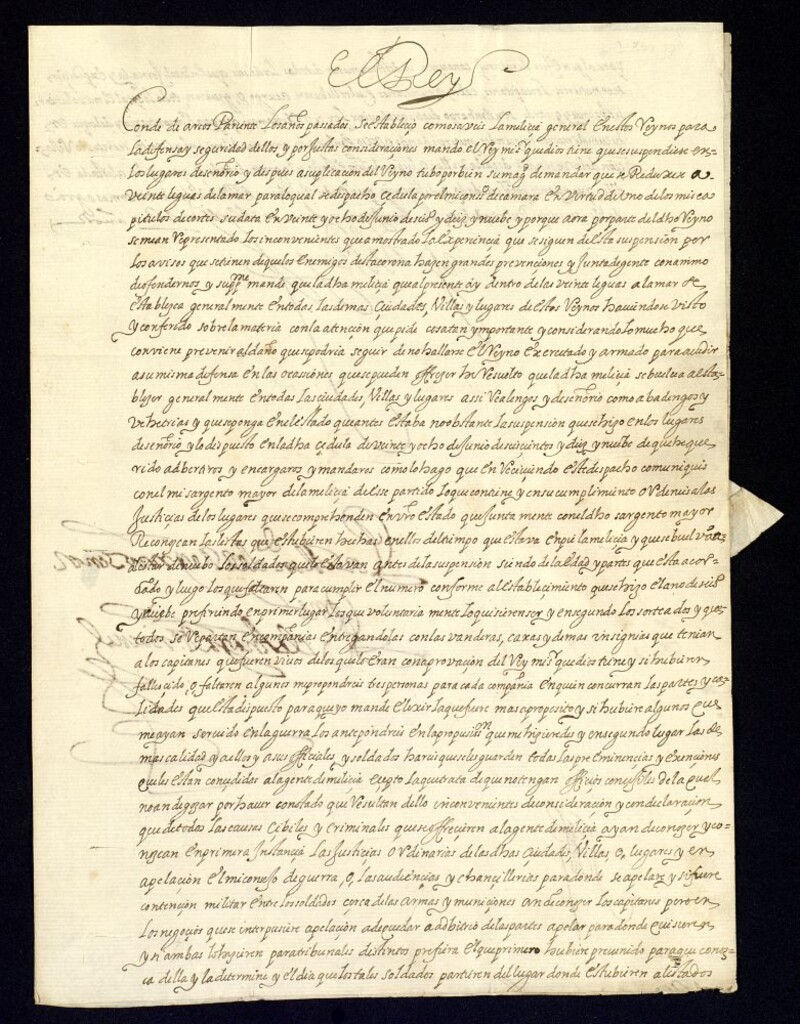 El Rey
Conde de arcos Pariente Los años passados se establecio como saveis la melicia general En estos Reynos para
la defensa y seguridad dellos y por justas consideraciones mando el Rey mi sr que dios tiene que se suspendiese en
los lugares de señorio y despues a suplicacion del Reyno tubo por bien su magd de mandar que se Reduxese a
veinte leguas de la mar para lo qual se despacho çedula por el mi consº de camara en virtud de Uno de los mis ca
pitulos de cortes su data en veinte y ocho de Junio de seisº y diez y nuebe y porque aora por parte del dho Reyno
se me an Representado Los inconvenientes que a mostrado la Experiencia que se siguen de esta suspension por
los avisos que se tienen de que los Enemigos desta corona hazen grandes prevenciones y Junta de gente con animo
de ofendernos y supdome mande que la dha melicia qual presente ay dentro de las veinte leguas a la mar se
establezca general mente en todas las demas Ciudades, Villas y lugares de estos Reynos haviendose visto
y conferido sobre la materia con la atencion que pide cosa tan ymportante y considerando lo mucho que
conviene prevenir al daño que se podria seguir de no hallarse El Reyno Exercitado y armado para acudir
a su misma defensa en las ocassiones que se pueden offrezer he Resuelto que la dha melicia se buelva a esta
blezer general mente en todas las ciudades, Villas y lugares assi Realengos y de señorio como abadengos y
vehetrias y que se ponga en el estado que antes estaba no obstante la suspension que se hizo en los lugares
de señorio y lo dispuesto en la dha çedula de veinte y ocho de Junio de seiscientos y diez y nuebe de que he que
rido advertiros y encargaros y mandaros como lo hago que en Reciviendo este despacho comuniqueis
con el mi sargento mayor de la melicia de ese partido lo que contiene y en su cumplimiento ordeneis a las
Justicias de los lugares que se comprehenden en vro Estado que Junta mente con el dho sargento mayor
Reconozcan las listas que estubieren hechas en ellos del tiempo que estava en pie la melicia y que se buelvan a
alistar de nuebo los soldados que lo estavan antes de la suspension siendo de la edad y partes que esta acor
dado y luego los que faltaren para cumplir el numero conforme al establecimiento que se hizo el año de seisº
y nuebe prefiriendo en primer lugar los que voluntaria mente lo quisieren ser y en segundo los sorteados y que
todos se Repartan en compañias entregandolas con las vanderas, caxas y demas insignias que tenian
a los capitanes que fueren vivos de los que lo eran con aprovacion del Rey mi sr que dios tiene y si hubieren
fallecido, o, faltaren algunos me propondreis tres personas para cada compañia en quien concurran las partes y ca
lidades que esta dispuesto para que yo mande elexir la que fuere mas a proposito y si hubiere algunos que
me ayan servido en la guerra los antepondreis en la proposicion que me hizieredes y en segundo lugar los de
mas calidad y a ellos y a sus officiales y soldados hareis que se les guarden todas las preeminencias y exenciones
que les estan concedidas a la gente de melicia exepto la que trata de que no tengan officios concejiles de la qual
no an de gozar por haver constado que Resultan dello inconvenientes de consideracion y con declaracion
que de todas las causas Cibiles y Criminales que se offrecieren a la gente de melicia ayan de conozer y co=
nozcan en primera Instancia las Justicias ordinarias de las dhas Ciudades, Villas, o, lugares y en
apelacion el mi consejo de guerra, o, las audiencias y chancillerias para donde se apelare y si fuere
contencion militar entre los soldados cerca de las armas y municiones an de conozer los capitanes pero en
los negocios que se interpusiere apelacion a de quedar a adbitrio de las partes apelar para donde quisieren
y si ambas lo hizieren para tribunales distintos prefiera el que primero hubiere prevenido para que conoz=
ca della y la determine y el dia que los tales soldados partieren del lugar donde estubieren alistados